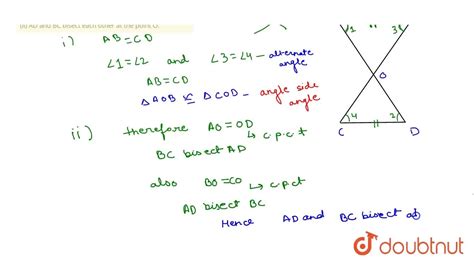 (ii) AD and BC bisect each other at the point O.
i) AB = CD
∠1=∠2 and ∠3=∠4 — alternate angle
AB = CD
△AOB ≅ △COD — angle side angle
ii) therefore AO = OD
↳ c.p.c.t
BC bisect AD
also BO = CO ↳ c.p.c.t
AD bisect BC
Hence AD and BC bisect at
1 3
O
4 2
C D
doubtnut